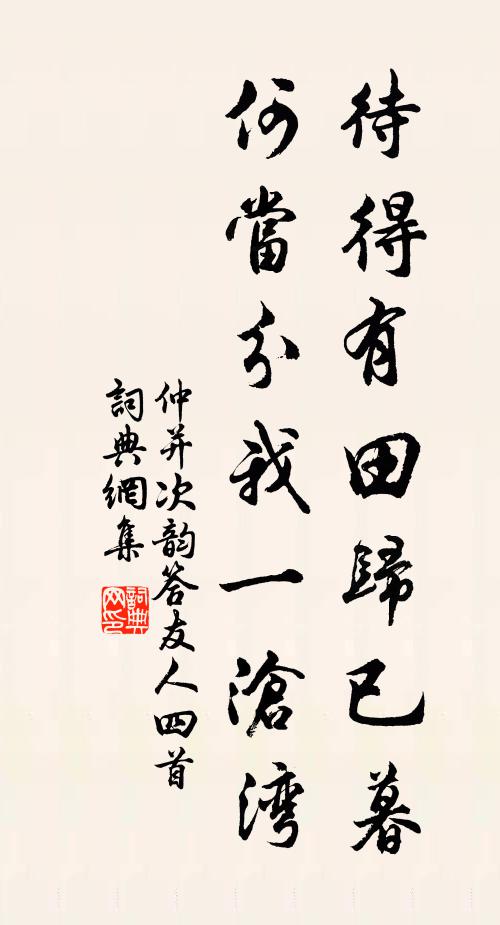 待得有田歸已暮
何當分我一滄湾
仲并次韵答友人四首
詞典網集
詞典网印